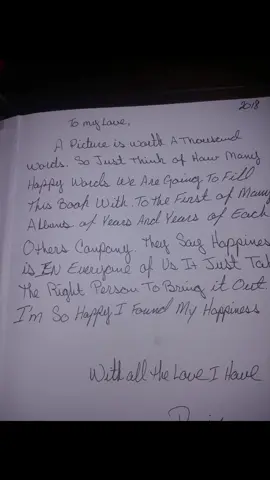 2018
To my Love,
A Picture is worth A Thousand
words. So Just Think of How Many
Happy Words We Are Going To Fill
This Book With. To the First of Many
Albums of Years And Years of Each
Others Company. They Say Happines
is IN Everyone of Us It Just Tak
The Right Person To Bring it Out
I'm So Happy I Found My Happiness
With all the Love I Have